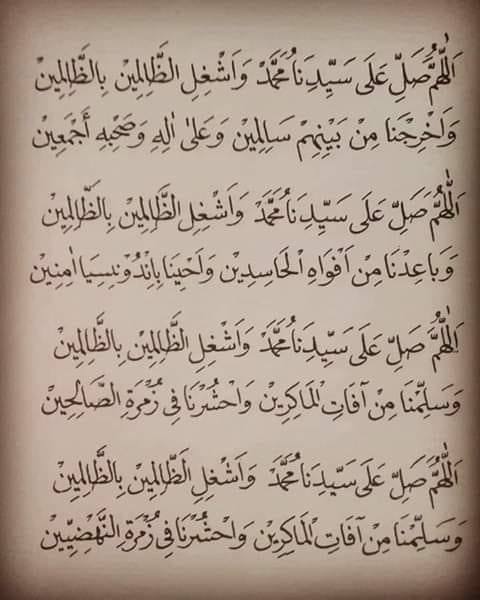 اَللّٰهُمَّ صَلِّ عَلَى سَيِّدِنَا مُحَمَّدْ وَاَشْغِلِ الظَّالِمِيْنَ بِالظَّالِمِيْنَ
وَاَخْرِجْنَا مِنْ بَيْنِهِمْ سَالِمِيْنَ وَعَلىٰ اٰلِهِ وَصَحْبِهِ أَجْمَعِيْنَ
اَللّٰهُمَّ صَلِّ عَلَى سَيِّدِنَا مُحَمَّدْ وَاَشْغِلِ الظَّالِمِيْنَ بِالظَّالِمِيْنَ
وَبَاعِدْنَا مِنْ اَفْوَاهِ الْحَاسِدِيْنَ وَاَحْيِنَا بِاِنْدُوْنِيْسِيَا اٰمِنِيْنَ
اَللّٰهُمَّ صَلِّ عَلَى سَيِّدِنَا مُحَمَّدْ وَاَشْغِلِ الظَّالِمِيْنَ بِالظَّالِمِيْنَ
وَسَلِّمْنَا مِنْ آفَاتِ الْمَاكِرِيْنَ وَاحْشُرْنَا فِى زُمْرَةِ الصَّالِحِيْنَ
اَللّٰهُمَّ صَلِّ عَلَى سَيِّدِنَا مُحَمَّدْ وَاَشْغِلِ الظَّالِمِيْنَ بِالظَّالِمِيْنَ
وَسَلِّمْنَا مِنْ آفَاتِ الْمَاكِرِيْنَ وَاحْشُرْنَا فِى زُمْرَةِ النَّهْضِيِّيْنَ